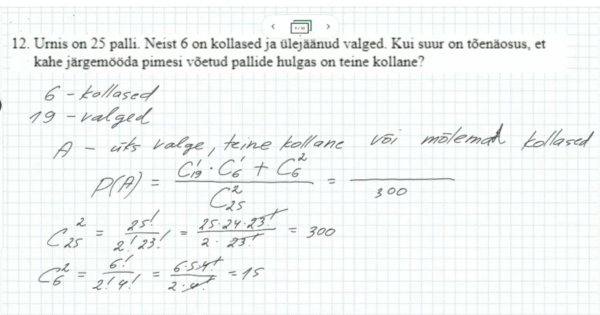 12. Urnis on 25 palli. Neist 6 on kollased ja ülejäänud valged. Kui suur on tõenäosus, et
kahe järgemööda pimesi võetud pallide hulgas on teine kollane?
6 - kollased
19 - valged
A - üks valge, teine kollane või mõlemad kollased
P(A) = (C₁₉¹ · C₆¹ + C₆²) / C₂₅² = ― / 300
C₂₅² = 25! / 2! 23! = 25·24·23! / 2 · 23! = 300
C₆² = 6! / 2! 4! = 6·5·4! / 2·4! = 15